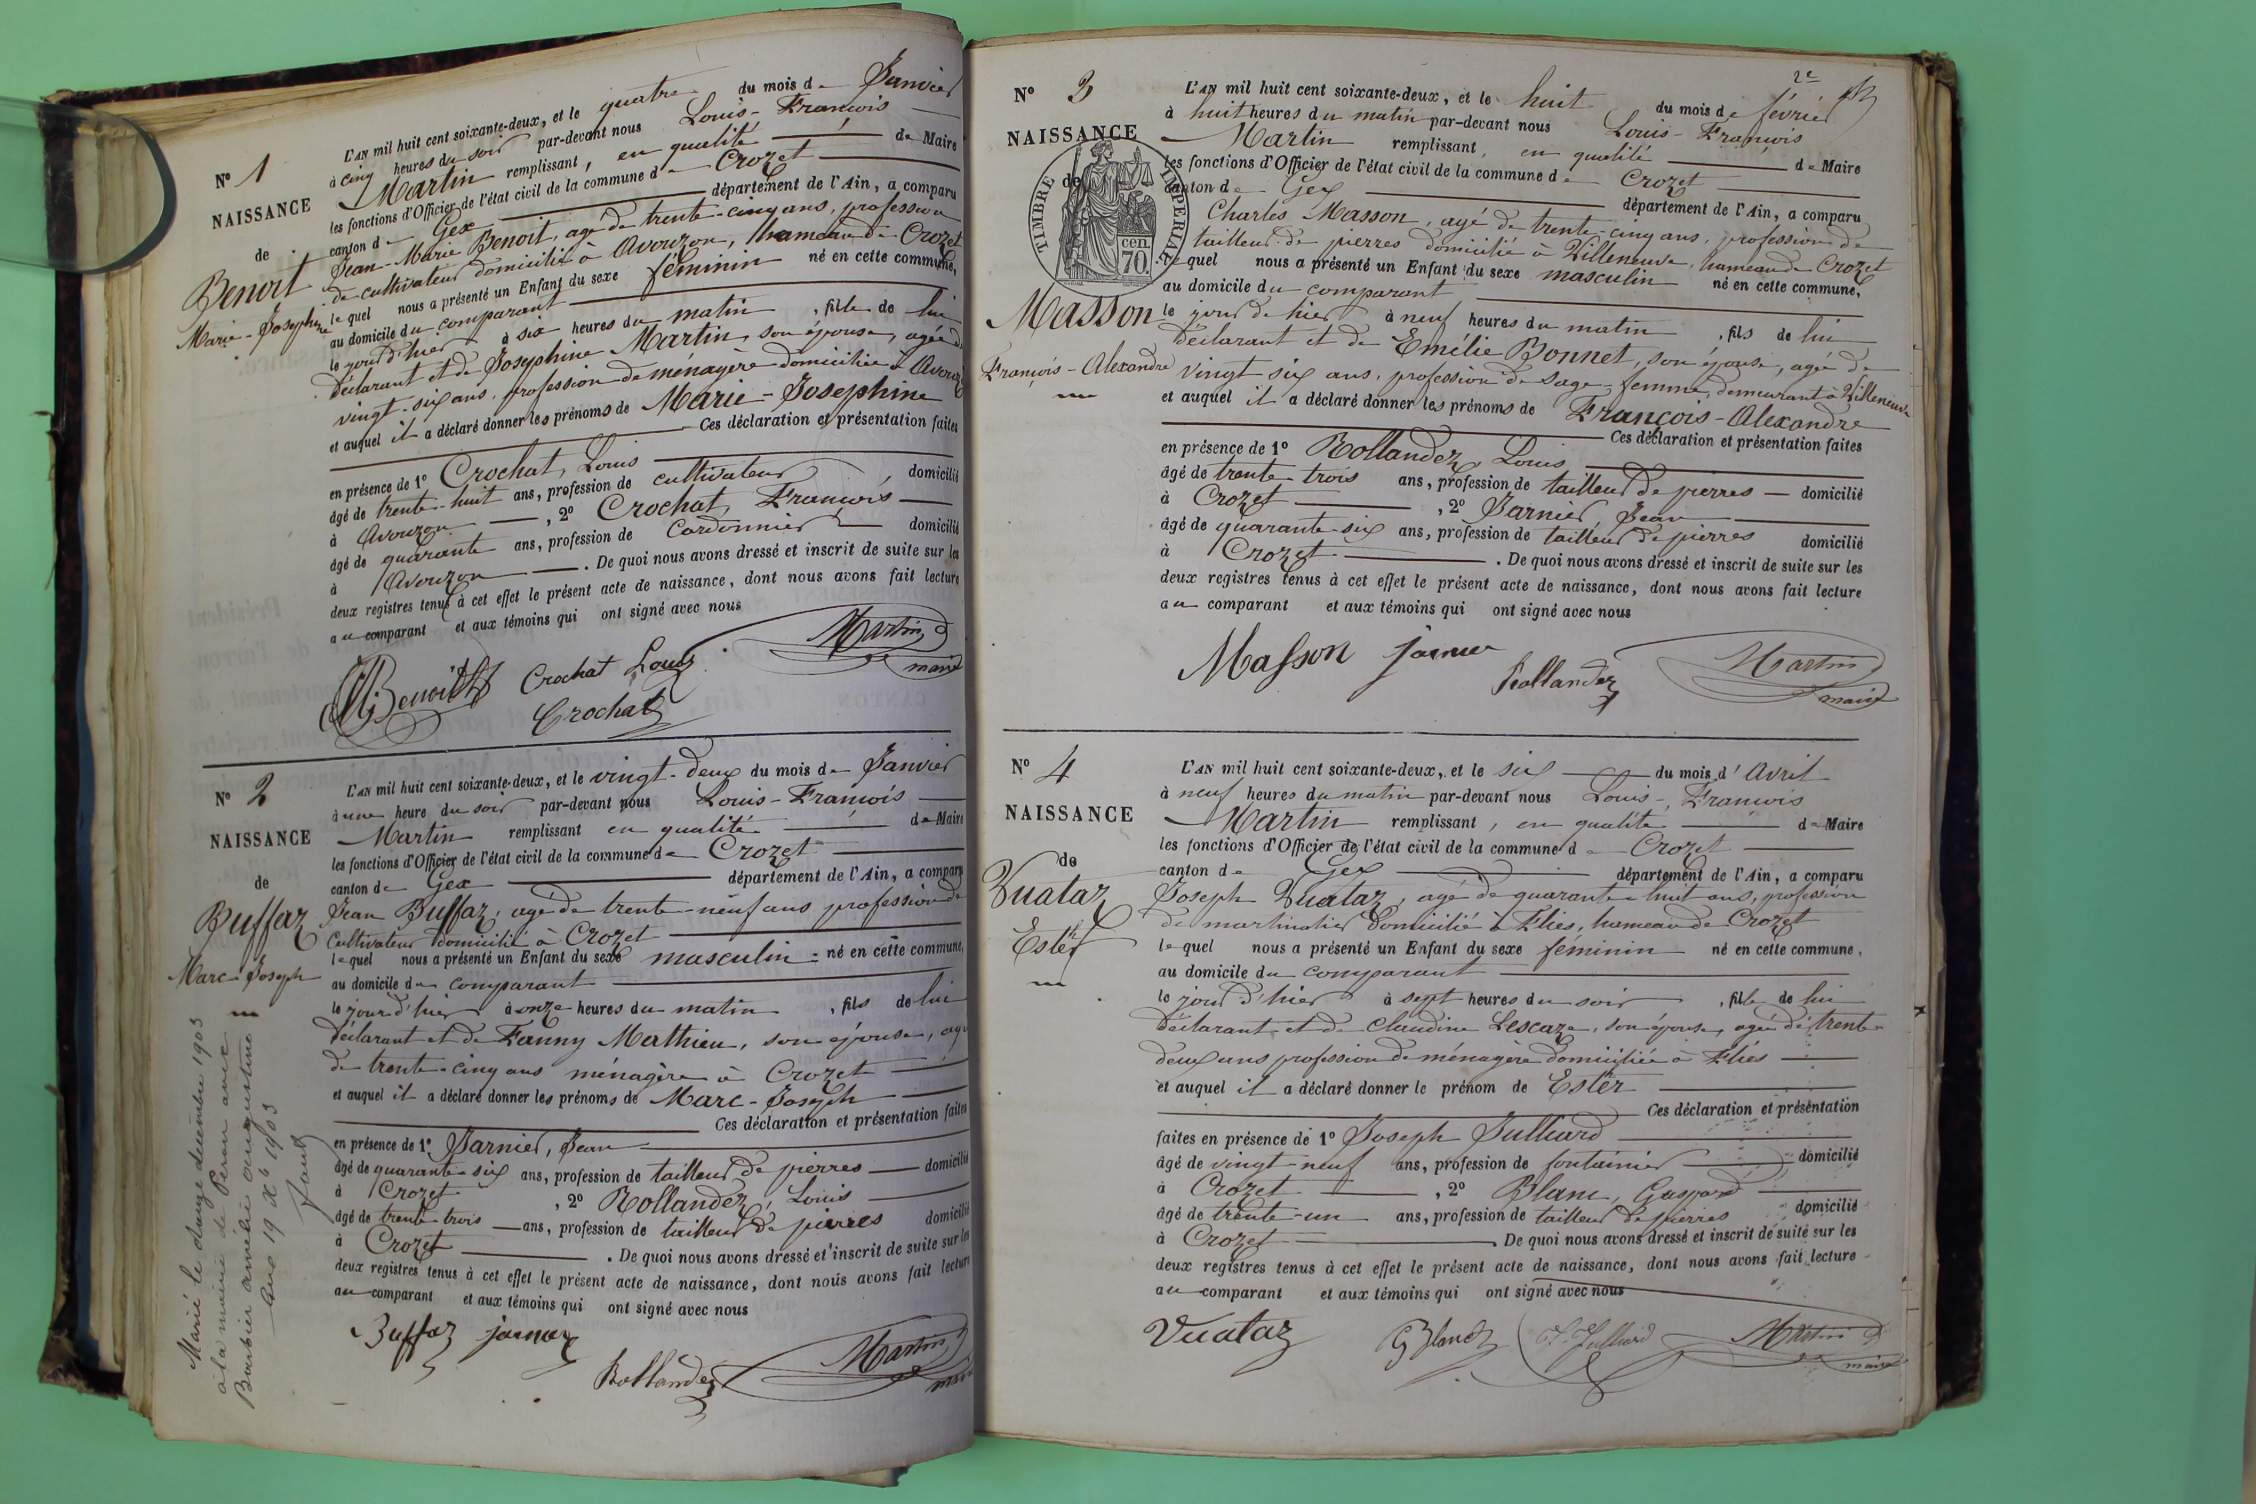 N° 1
NAISSANCE
de
Benoit
Marie-Josephine
L'AN mil huit cent soixante-deux, et le quatre du mois de Janvier
à cinq heures du soir par-devant nous Louis-François
Martin remplissant, en qualité de Maire
les fonctions d'Officier de l'état civil de la commune de Crozet
canton de Gex département de l'Ain, a comparu
Jean-Marie Benoit, agé de trente-cinq ans, profession
de cultivateur domicilié à Avouzon, hameau de Crozet
lequel nous a présenté un Enfant du sexe féminin né en cette commune,
au domicile du comparant
le jour d'hier à six heures du matin, fille de lui
déclarant et de Josephine Martin, son épouse, agée de
vingt-six ans, profession de ménagère domiciliée à Avouzon
et auquel il a déclaré donner les prénoms de Marie-Josephine
Ces déclaration et présentation faites
en présence de 1° Crochat, Louis
âgé de trente-huit ans, profession de cultivateur domicilié
à Avouzon, 2° Crochat, François
âgé de quarante ans, profession de Cordonnier domicilié
à Avouzon. De quoi nous avons dressé et inscrit de suite sur les
deux registres tenus à cet effet le présent acte de naissance, dont nous avons fait lecture
au comparant et aux témoins qui ont signé avec nous
JMBenoit Crochat Louis Martin
maire
Crochat
N° 2
NAISSANCE
de
Buffaz
Marc-Joseph
L'AN mil huit cent soixante-deux, et le vingt-deux du mois de Janvier
à une heure du soir par-devant nous Louis-François
Martin remplissant en qualité de Maire
les fonctions d'Officier de l'état civil de la commune de Crozet
canton de Gex département de l'Ain, a comparu
Jean Buffaz, age de trente-neuf ans profession de
cultivateur domicilié à Crozet
lequel nous a présenté un Enfant du sexe masculin né en cette commune,
au domicile du comparant
le jour d'hier à onze heures du matin, fils de lui
déclarant et de Fanny Mathieu, son épouse, agé
de trente-cinq ans ménagère à Crozet
et auquel il a déclaré donner les prénoms de Marc-Joseph
Ces déclaration et présentation faites
en présence de 1° Jarnier, Jean
âgé de quarante-six ans, profession de tailleur de pierres domicilié
à Crozet, 2° Rollandez, Louis
âgé de trente-trois ans, profession de tailleur de pierres domicilié
à Crozet. De quoi nous avons dressé et inscrit de suite sur les
deux registres tenus à cet effet le présent acte de naissance, dont nous avons fait lecture
au comparant et aux témoins qui ont signé avec nous
Buffaz jarnier
Rollandez Martin
maire
Marié le douze décembre 1903
à la mairie de Peron avec
Barbier amélie augustine
19 Xbre 1903
N° 3
NAISSANCE
de
TIMBRE IMPERIAL
70 cen.
Masson
François-Alexandre
2e
L'AN mil huit cent soixante-deux, et le huit du mois de février
à huit heures du matin par-devant nous Louis-François
Martin remplissant, en qualité de Maire
les fonctions d'Officier de l'état civil de la commune de Crozet
canton de Gex département de l'Ain, a comparu
Charles Masson, agé de trente-cinq ans, profession de
tailleur de pierres domicilié à Villeneuve, hameau de Crozet
lequel nous a présenté un Enfant du sexe masculin né en cette commune,
au domicile du comparant
le jour de hier à neuf heures du matin, fils de lui
déclarant et de Emélie Bonnet, son épouse, agé de
vingt six ans, profession de sage-femme, demeurant à Villeneuve
et auquel il a déclaré donner les prénoms de François-Alexandre
Ces déclaration et présentation faites
en présence de 1° Rollandez, Louis
âgé de trente trois ans, profession de tailleur de pierres domicilié
à Crozet, 2° Jarnier, Jean
âgé de quarante-six ans, profession de tailleur de pierres domicilié
à Crozet. De quoi nous avons dressé et inscrit de suite sur les
deux registres tenus à cet effet le présent acte de naissance, dont nous avons fait lecture
au comparant et aux témoins qui ont signé avec nous
Masson jarnier Rollandez Martin
maire
N° 4
NAISSANCE
de
Vuataz
Esther
L'AN mil huit cent soixante-deux, et le six du mois d'Avril
à neuf heures du matin par-devant nous Louis-François
Martin remplissant, en qualité de Maire
les fonctions d'Officier de l'état civil de la commune d Crozet
canton de Gex département de l'Ain, a comparu
Joseph Vuataz, agé de quarante-huit ans, profession
de martinatier domicilié à Flies, hameau de Crozet
lequel nous a présenté un Enfant du sexe féminin né en cette commune,
au domicile du comparant
le jour d'hier à sept heures du soir, fille de lui
déclarant et de Claudine Lescaze, son épouse, agée de trente-
deux ans profession de ménagère domiciliée à Flies
et auquel il a déclaré donner le prénom de Esther
Ces déclaration et présentation
faites en présence de 1° Joseph Julliard
âgé de vingt-neuf ans, profession de fontainier domicilié
à Crozet, 2° Blanc, Gaspard
âgé de trente-un ans, profession de tailleur de pierres domicilié
à Crozet. De quoi nous avons dressé et inscrit de suite sur les
deux registres tenus à cet effet le présent acte de naissance, dont nous avons fait lecture
au comparant et aux témoins qui ont signé avec nous
Vuataz G Blanc J. Julliard Martin
maire